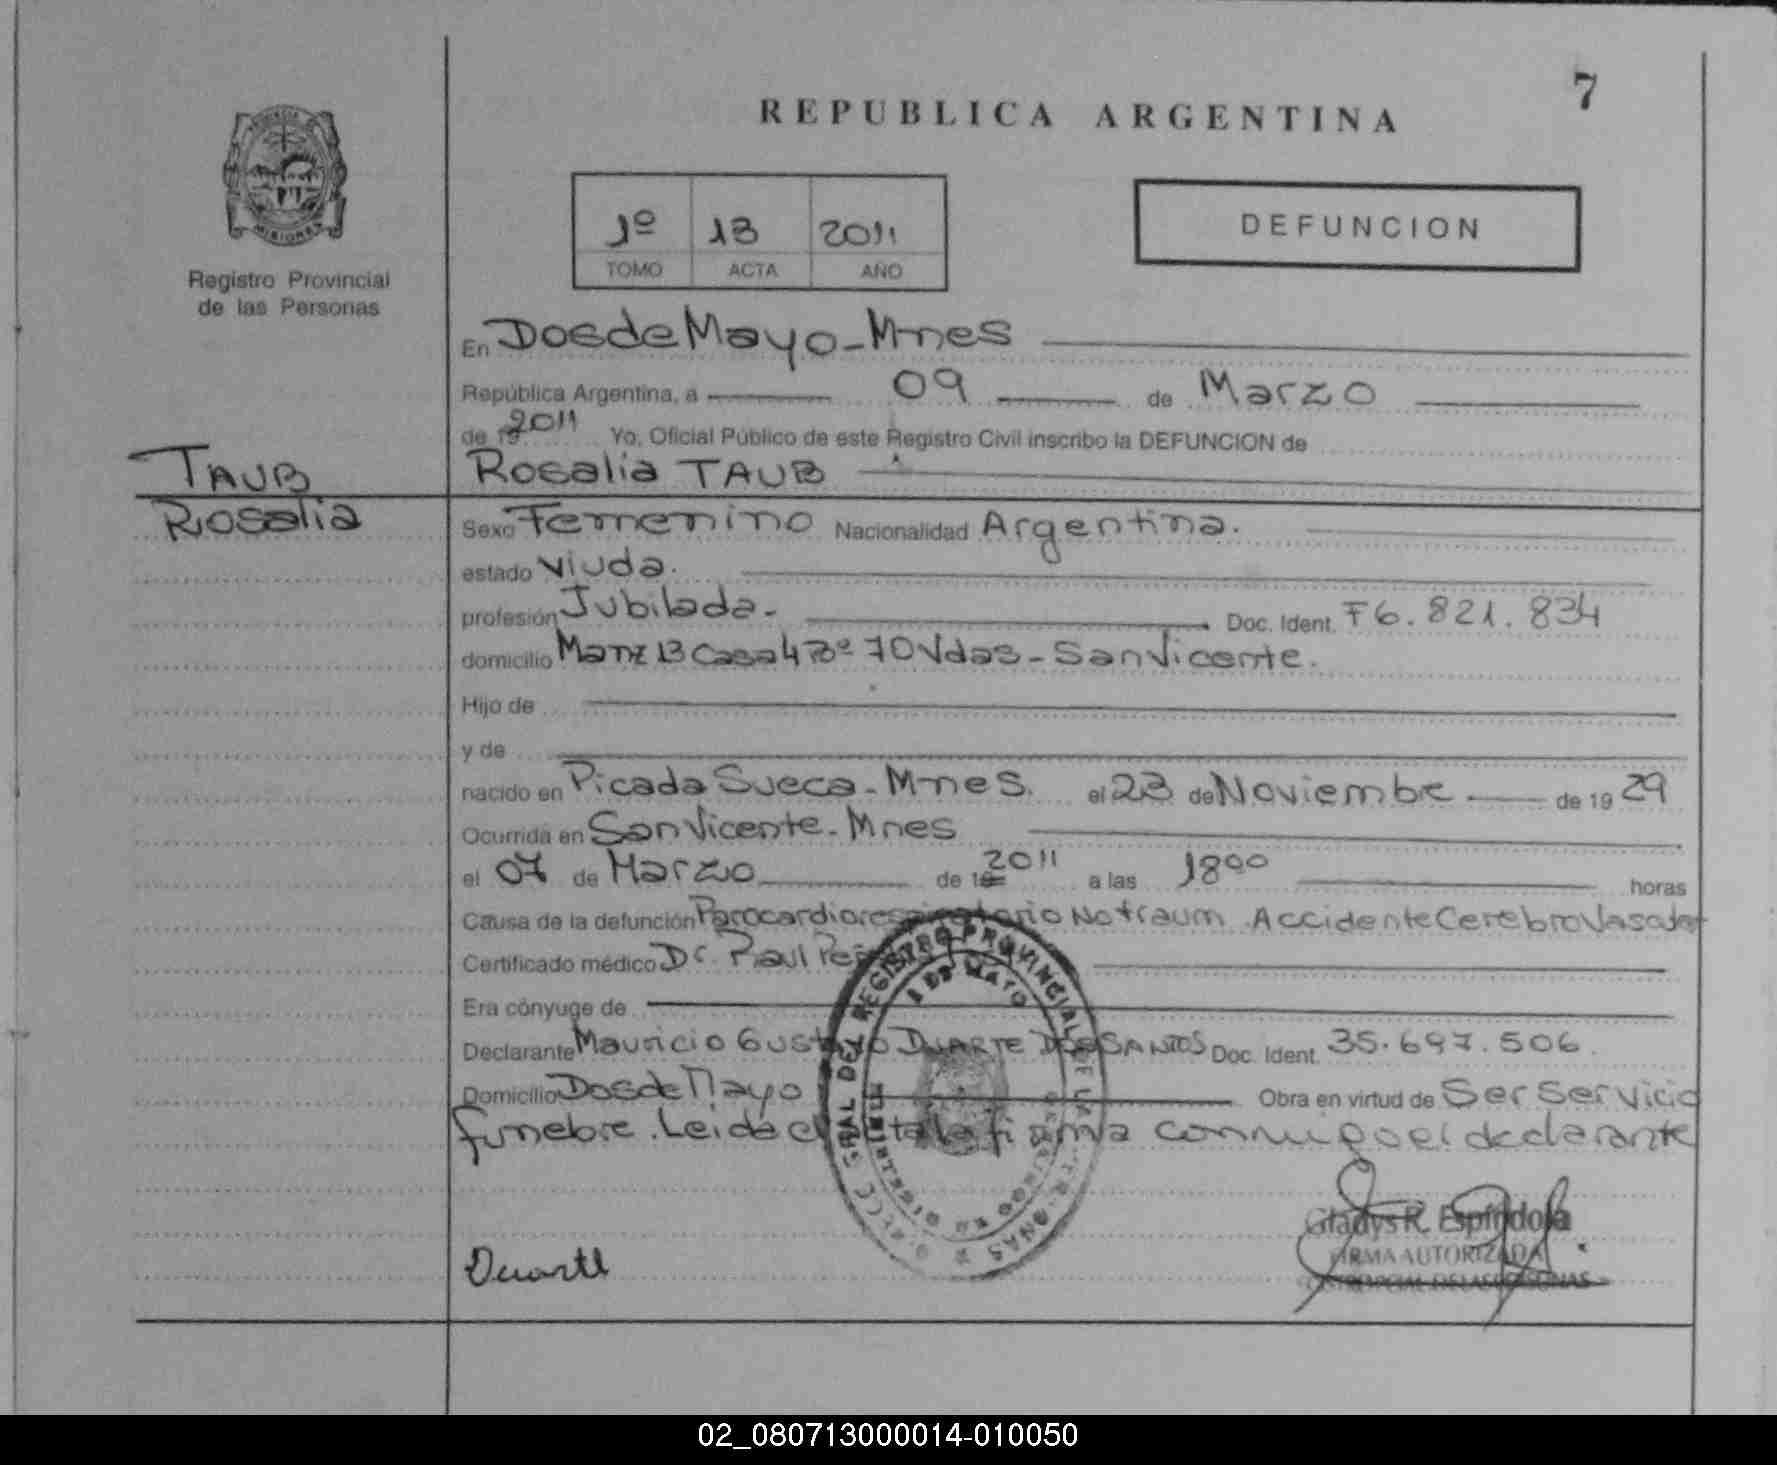 7
REPUBLICA ARGENTINA
1º 13 2011
TOMO ACTA AÑO
DEFUNCION
MISIONES
Registro Provincial
de las Personas
En Dos de Mayo - Mnes
República Argentina, a 09 de Marzo
de 19 2011 Yo, Oficial Público de este Registro Civil inscribo la DEFUNCION de
TAUB
Rosalia TAUB
Rosalia
Sexo Femenino Nacionalidad Argentina.
estado Viuda.
profesión Jubilada - Doc. Ident. F6.821.834
domicilio Manz 13 Casa 4 Bº 70 Vdas - San Vicente.
Hijo de
y de
nacido en Picada Sueca - Mnes. el 23 de Noviembre de 19 29
Ocurrida en San Vicente - Mnes
el 07 de Marzo de 19 2011 a las 18⁰⁰ horas
Causa de la defunción Parocardiorespiratorio No traum. Accidente Cerebro Vascular
Certificado médico Dr. Raul
Era cónyuge de
Declarante Mauricio Gustavo DUARTE DOS SANTOS Doc. Ident. 35.697.506
Domicilio Dos de Mayo Obra en virtud de Ser Servicio
funebre. Leida el acta la firma conmigo el declarante
REGISTRO PROVINCIAL DE LAS PERSONAS
DE MAYO
Duarte
Gladys R. Espíndola
FIRMA AUTORIZADA
02_080713000014-010050